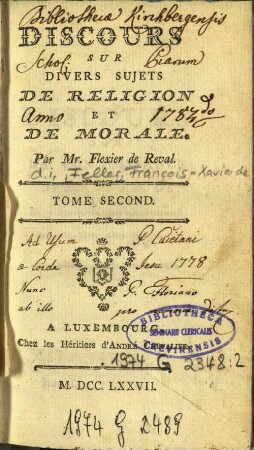 Bibliothecæ Kirchbergensis
DISCOURS
Schol: SUR Piarum
DIVERS SUJETS
DE RELIGION
Anno ET 1782do
DE MORALE.
Par Mr. Flexier de Reval.
d.i. Feller, François-Xavier de
TOME SECOND.
Ad Usum P. Caietani
a Corde Jesu 1778
Nunc P. Floriano
ab illo pro
BIBLIOTHECA
SEMINARII CLERICALIS
A LUXEMBOURG,
Chez les Héritiers d'ANDRÉ CHEVALIER.
1974 G 2348:2
M. DCC. LXXVII.
1974 G 2489